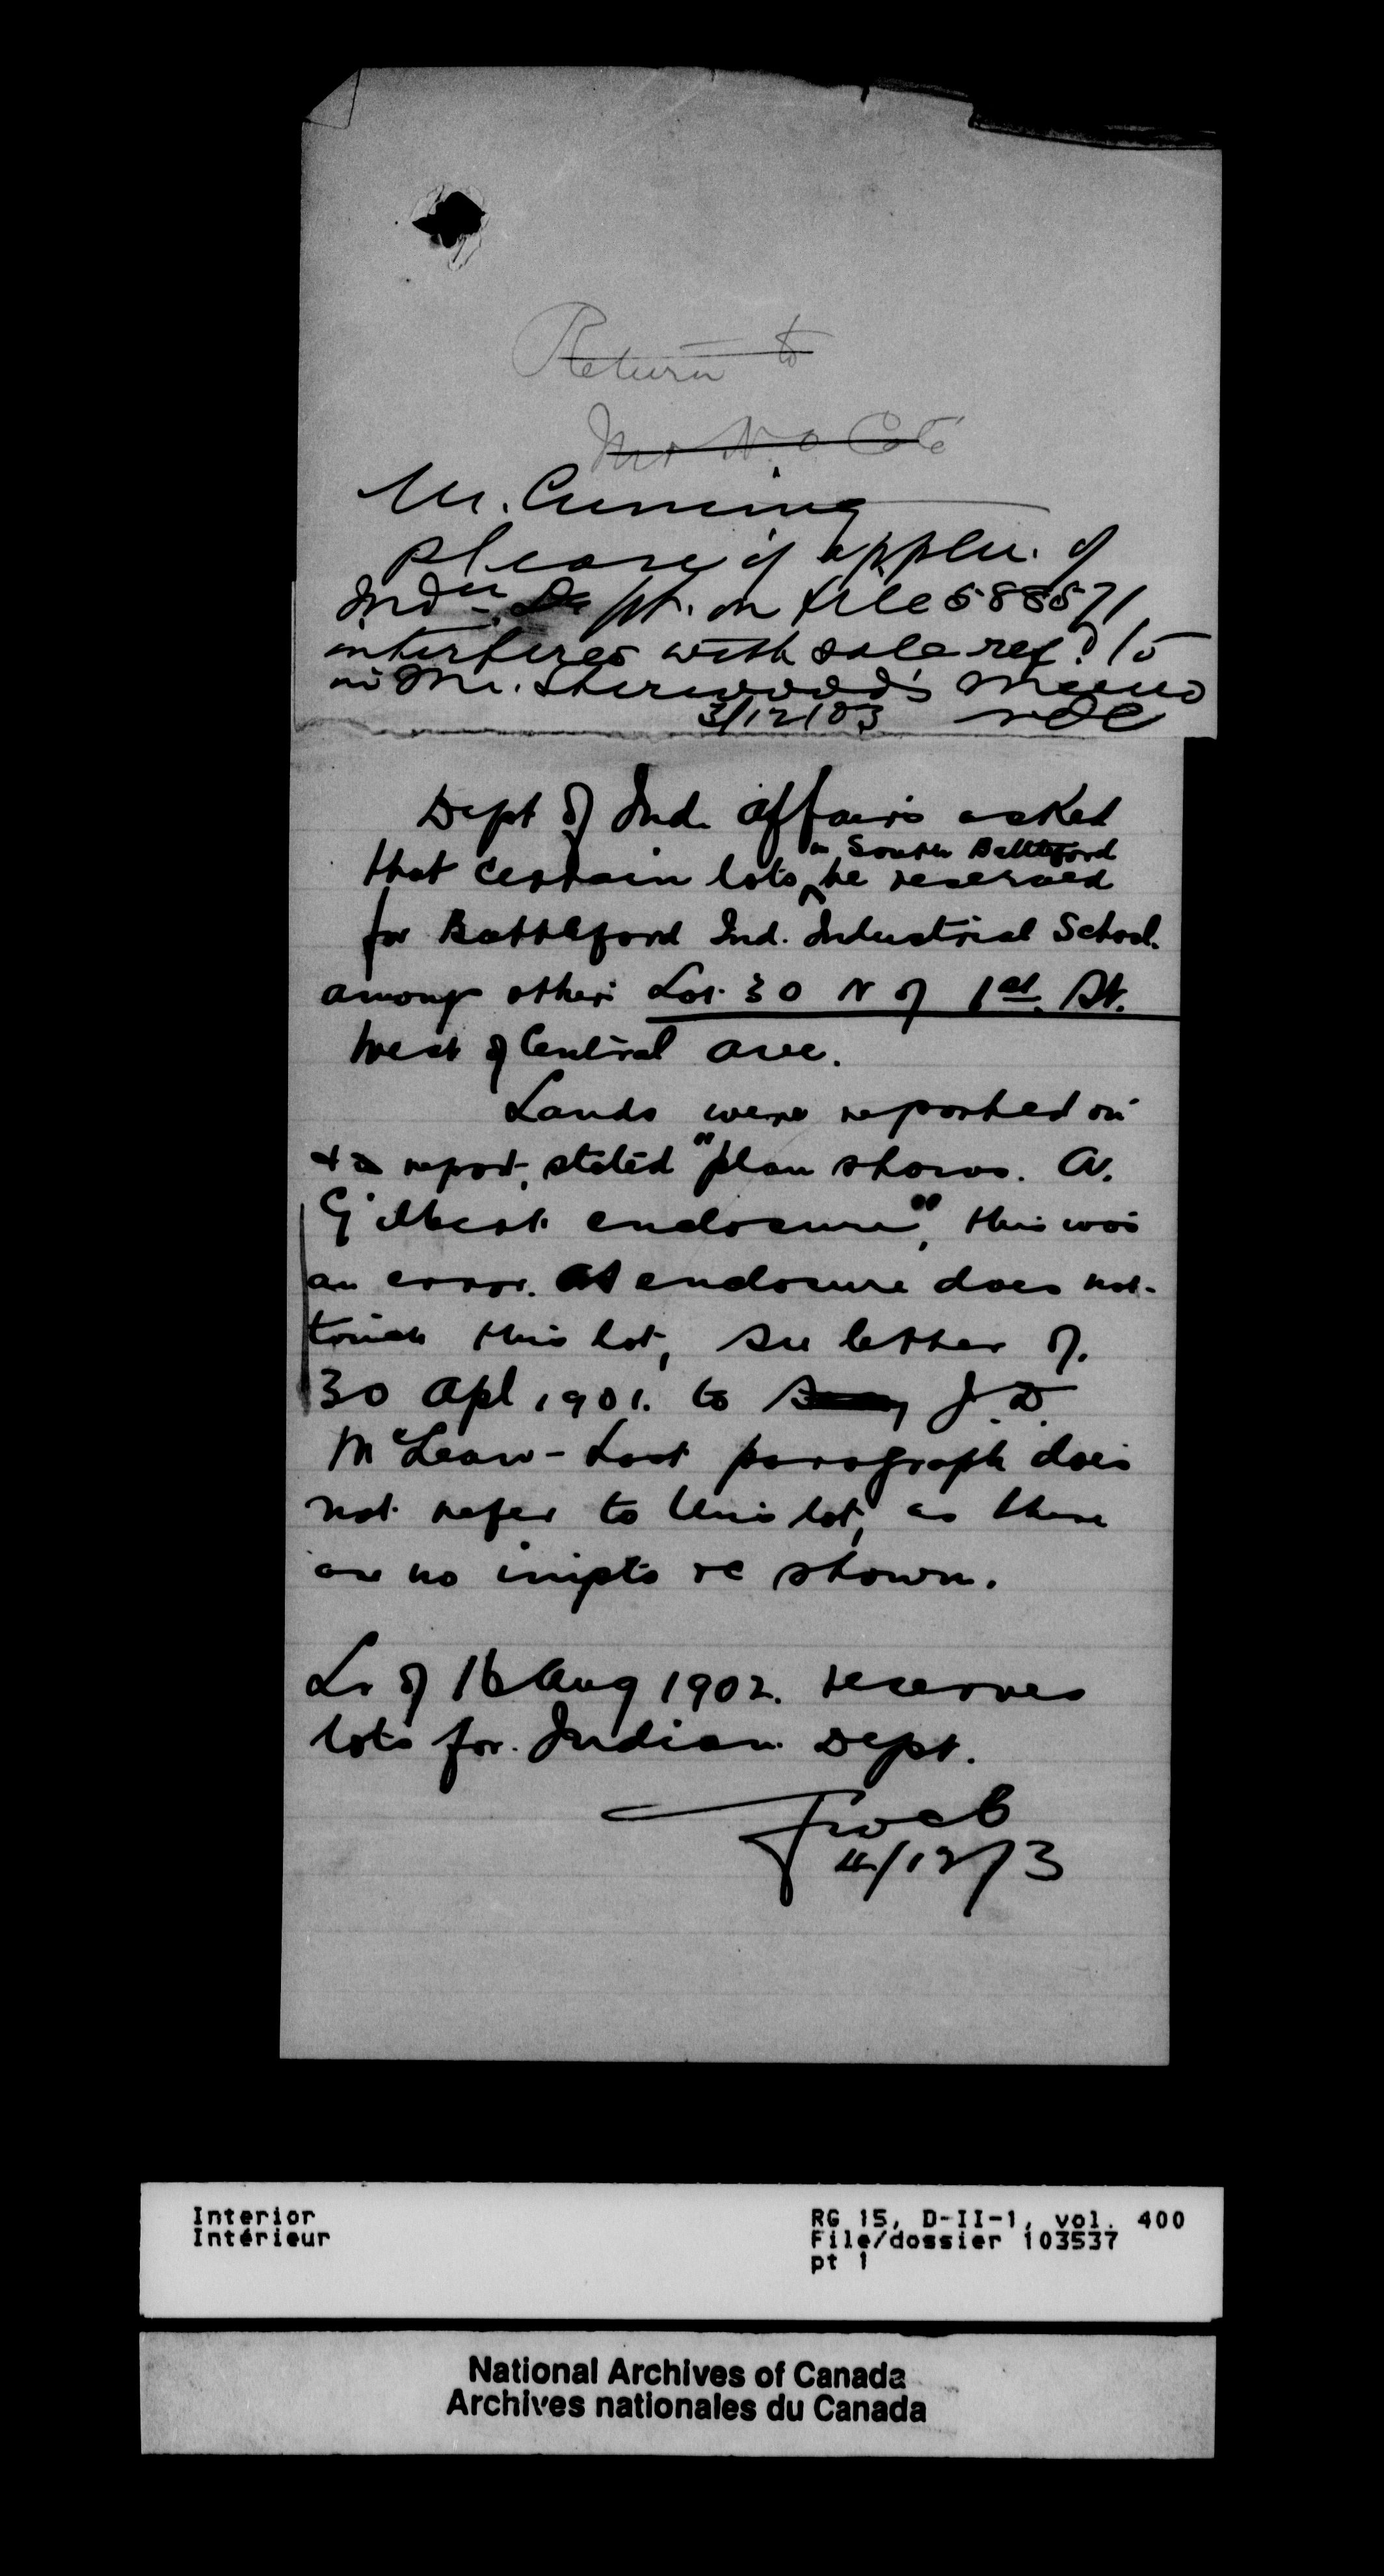 Return to
Mr N. O Coté
Mr. Cuming
please if applen. of
Indn. Dept. on file 588571
interferes with sale refd to
in Mr. Sherwood's memo
3/12/03 NOC
Dept of Ind. Affairs asked
in South Battleford
that certain lots be reserved
for Battleford Ind. Industrial School.
among others Lot 30 N of 1st St.
West of Central ave.
Lands were reported on
& a report, stated "plan shows. A.
Gilbert enclosure", this was
an error. enclosure does not
touch this lot, see letter of.
30 Apl 1901. to J. D.
McLean - Last paragraph does
not refer to this lot, as there
are no impts re shown.
Lr of 16 Aug 1902. reserves
lots for. Indian Dept.
4/12/3
Interior
Intérieur
RG 15, D-II-1, vol. 400
File/dossier 103537
pt 1
National Archives of Canada
Archives nationales du Canada